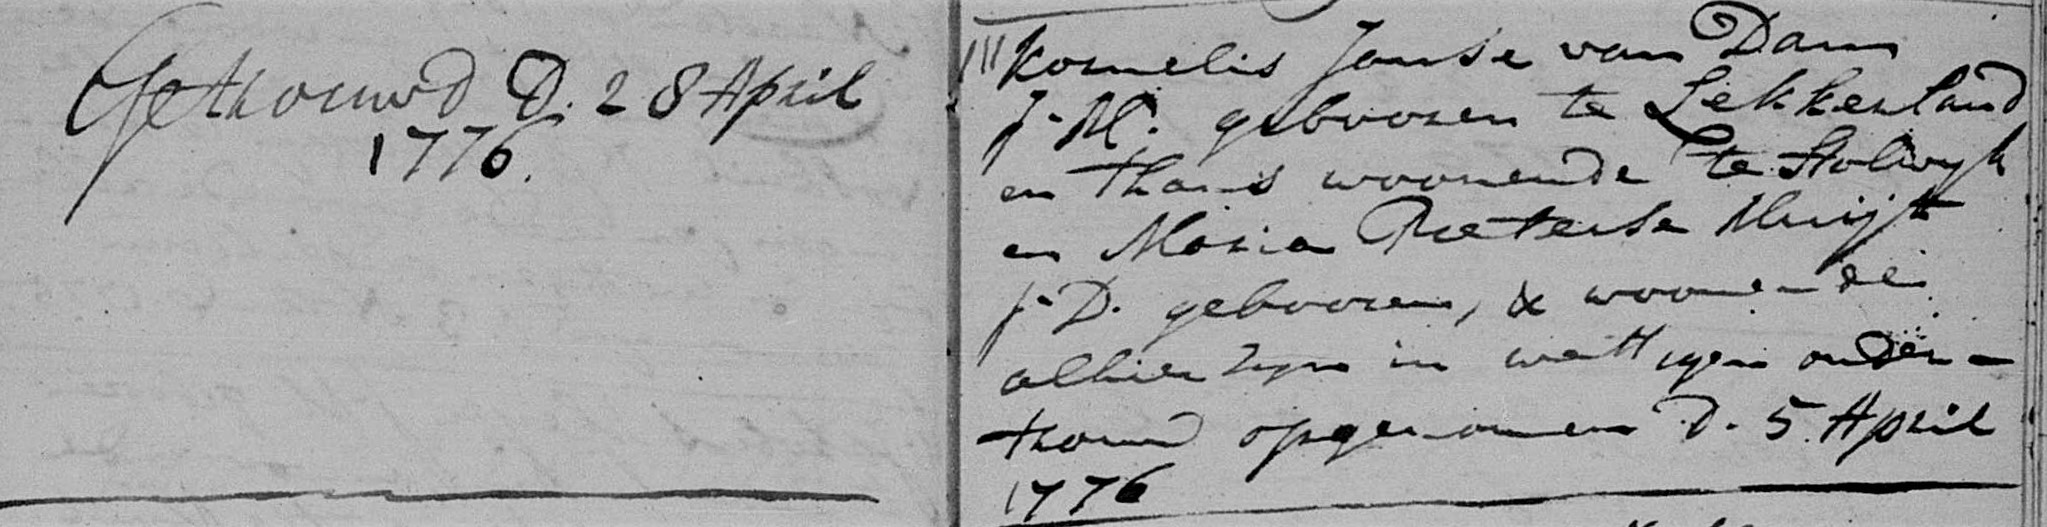 Gethrouwd D. 28 April
1776.
III Kornelis Janse van Dam
J. M. gebooren te Lekkerland
en thans woonende te Stolwyk
en Maria Pieterse Muijt
J. D. gebooren, & woonende
alhier zyn in wettigen onder-
throuw opgenomen d. 5 April
1776